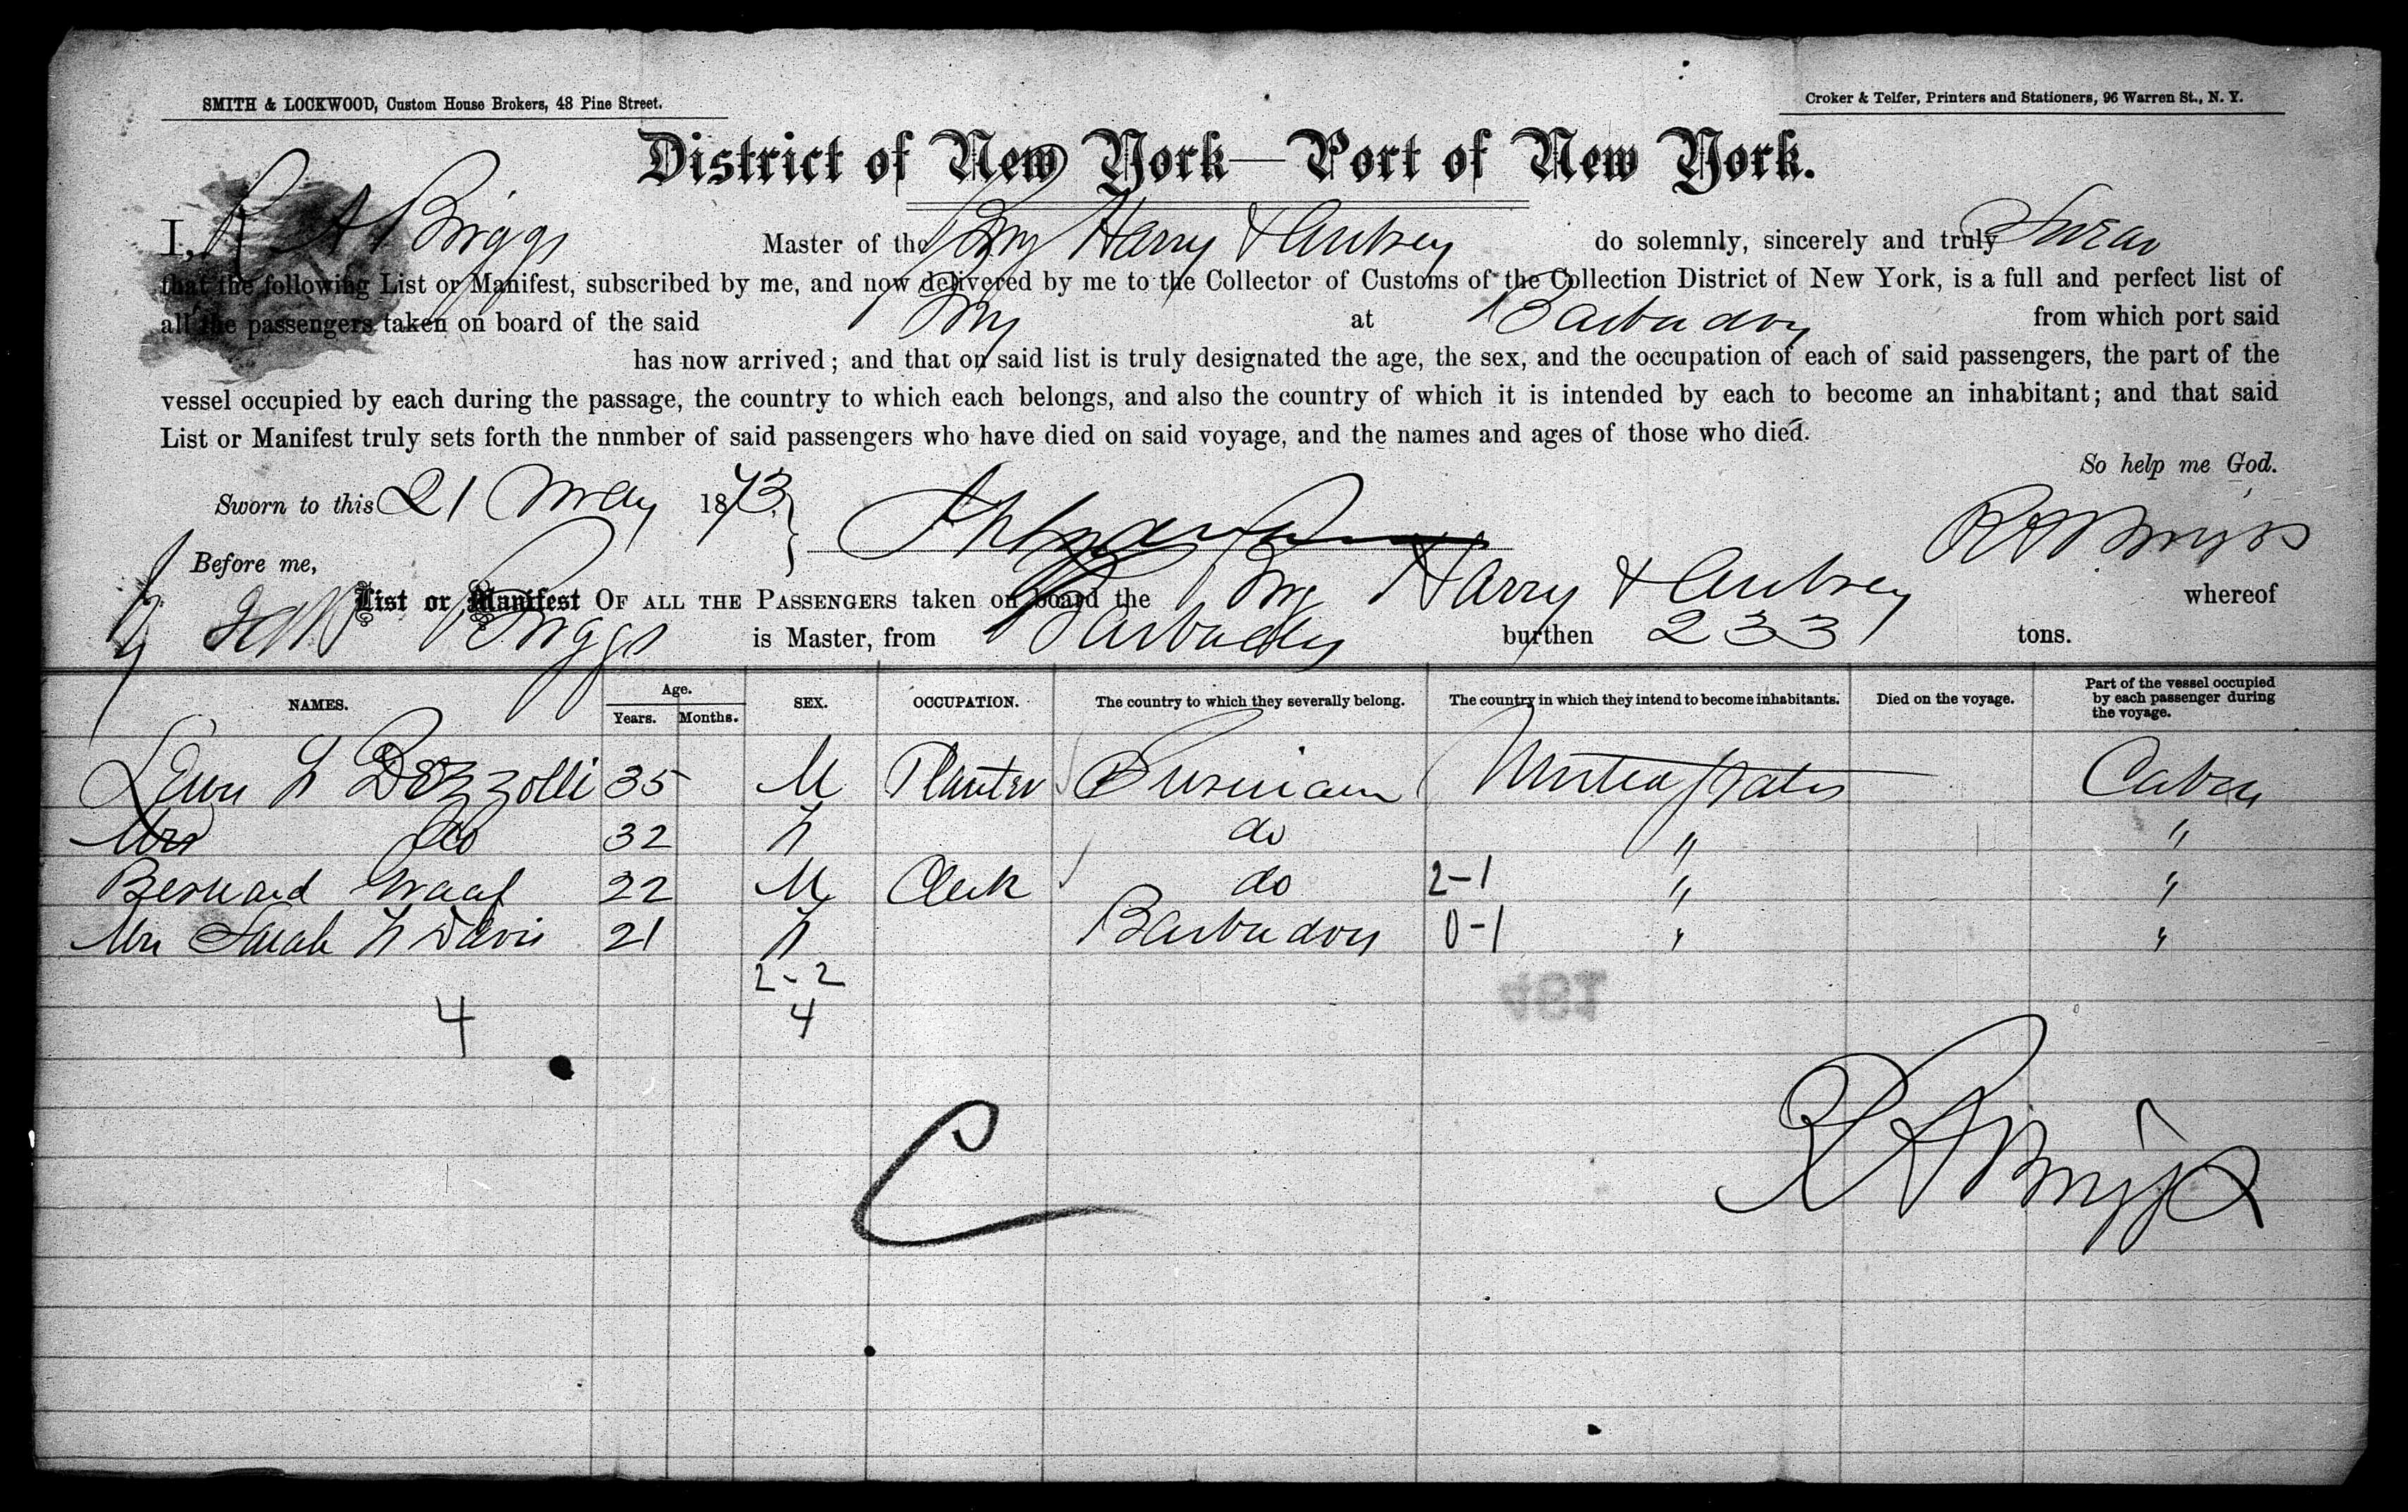 SMITH & LOCKWOOD, Custom House Brokers, 48 Pine Street.
Croker & Telfer, Printers and Stationers, 96 Warren St., N. Y.
District of New York—Port of New York.
I, R A Briggs Master of the Brg Harry & Aubrey do solemnly, sincerely and truly Swear
that the following List or Manifest, subscribed by me, and now delivered by me to the Collector of Customs of the Collection District of New York, is a full and perfect list of
all the passengers taken on board of the said Brg at Barbadoes from which port said
has now arrived; and that on said list is truly designated the age, the sex, and the occupation of each of said passengers, the part of the
vessel occupied by each during the passage, the country to which each belongs, and also the country of which it is intended by each to become an inhabitant; and that said
List or Manifest truly sets forth the nnmber of said passengers who have died on said voyage, and the names and ages of those who died.
So help me God.
Sworn to this 21 May 1873
R A Briggs
Before me,
List or Manifest OF ALL THE PASSENGERS taken on board the Brg Harry & Aubrey whereof
Briggs is Master, from Barbadoes burthen 233 tons.
NAMES. Age. Years. Months. SEX. OCCUPATION. The country to which they severally belong. The country in which they intend to become inhabitants. Died on the voyage. Part of the vessel occupied by each passenger during the voyage.
35 M Planter United States Cabin
Mrs do 32 F do " "
Bernard Graaf 22 M Clerk do 2-1 " "
Mrs Sarah F Davis 21 F Barbadoes 0-1 " "
2-2
4 4
C
R A Briggs